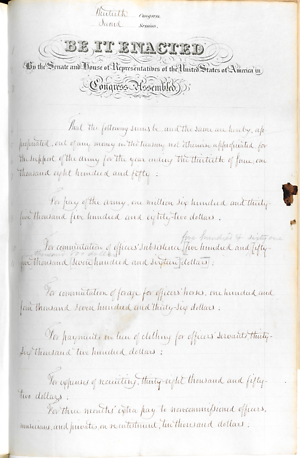 Thirtieth Congress
Second Session
BE IT ENACTED
By the Senate and House of Representatives of the United States of America in
Congress Assembled,
That the following sums be, and the same are hereby, ap
propriated, out of any money in the treasury not otherwise appropriated for
the support of the army for the year ending the thirtieth of June, one
thousand eight hundred and fifty:
For pay of the army, one million six hundred and thirty-
four thousand five hundred and eighty-two dollars.
four hundred & sixty one
For commutation of officers' subsistence, five hundred and fifty-
five thousand seven hundred and sixteen dollars;
For commutation of forage for officers' horses, one hundred and
four thousand seven hundred and thirty-six dollars.
For payments in lieu of clothing for officers' servants thirty-
six thousand two hundred dollars;
For expenses of recruiting, thirty-eight thousand and fifty-
two dollars.
For three months' extra pay to non-commissioned officers,
musicians, and privates, on reenlistment, ten thousand dollars.